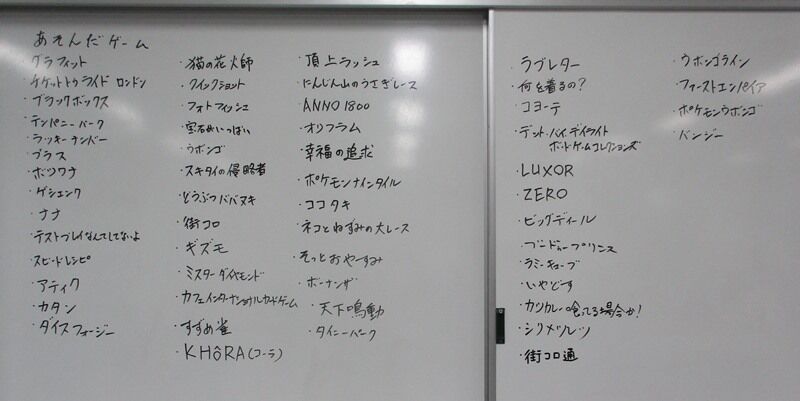 あそんだゲーム
・グラフィット
・チケットトゥライド ロンドン
・ブラックボックス
・テンパニーパーク
・ラッキーナンバー
・プラス
・ボツワナ
・ゲシェンク
・ナナ
・テストプレイなんてしてないよ
・スピードレシピ
・アティク
・カタン
・ダイスフォージ
・猫の花火師
・クイックショット
・フォトフィッシュ
・宝石がいっぱい
・ウボンゴ
・スキタイの侵略者
・どうぶつババヌキ
・街コロ
・ギズモ
・ミスターダイヤモンド
・カフェインターナショナルカードゲーム
・すずめ雀
・KHôRA(コーラ)
・頂上ラッシュ
・にんじん山のうさぎレース
・ANNO 1800
・オリフラム
・幸福の追求
・ポケモンナインタイル
・ココタキ
・ネコとねずみの大レース
・そっとおやすみ
・ボーナンザ
・天下鳴動
・タイニーパーク
・ラブレター
・何を着るの?
・コヨーテ
・デッド・バイ・デイライト
ボードゲームコレクションズ
・LUXOR
・ZERO
・ビッグディール
・ブードゥープリンス
・ラミィキューブ
・いやどす
・カツカレー喰ってる場合か!
・シリメツレツ
・街コロ通
・ウボンゴライン
・ファーストエンパイア
・ポケモンウボンゴ
・バンジー